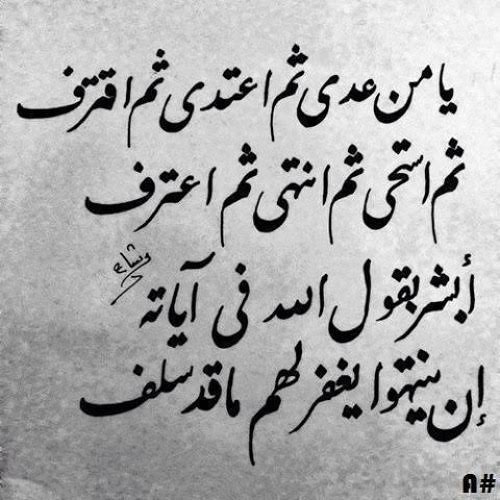 يا من عدى ثم اعتدى ثم اقترف
ثم استحى ثم انتهى ثم اعترف
أبشر بقول الله في آياته
إن ينتهوا يغفر لهم ما قد سلف
A#